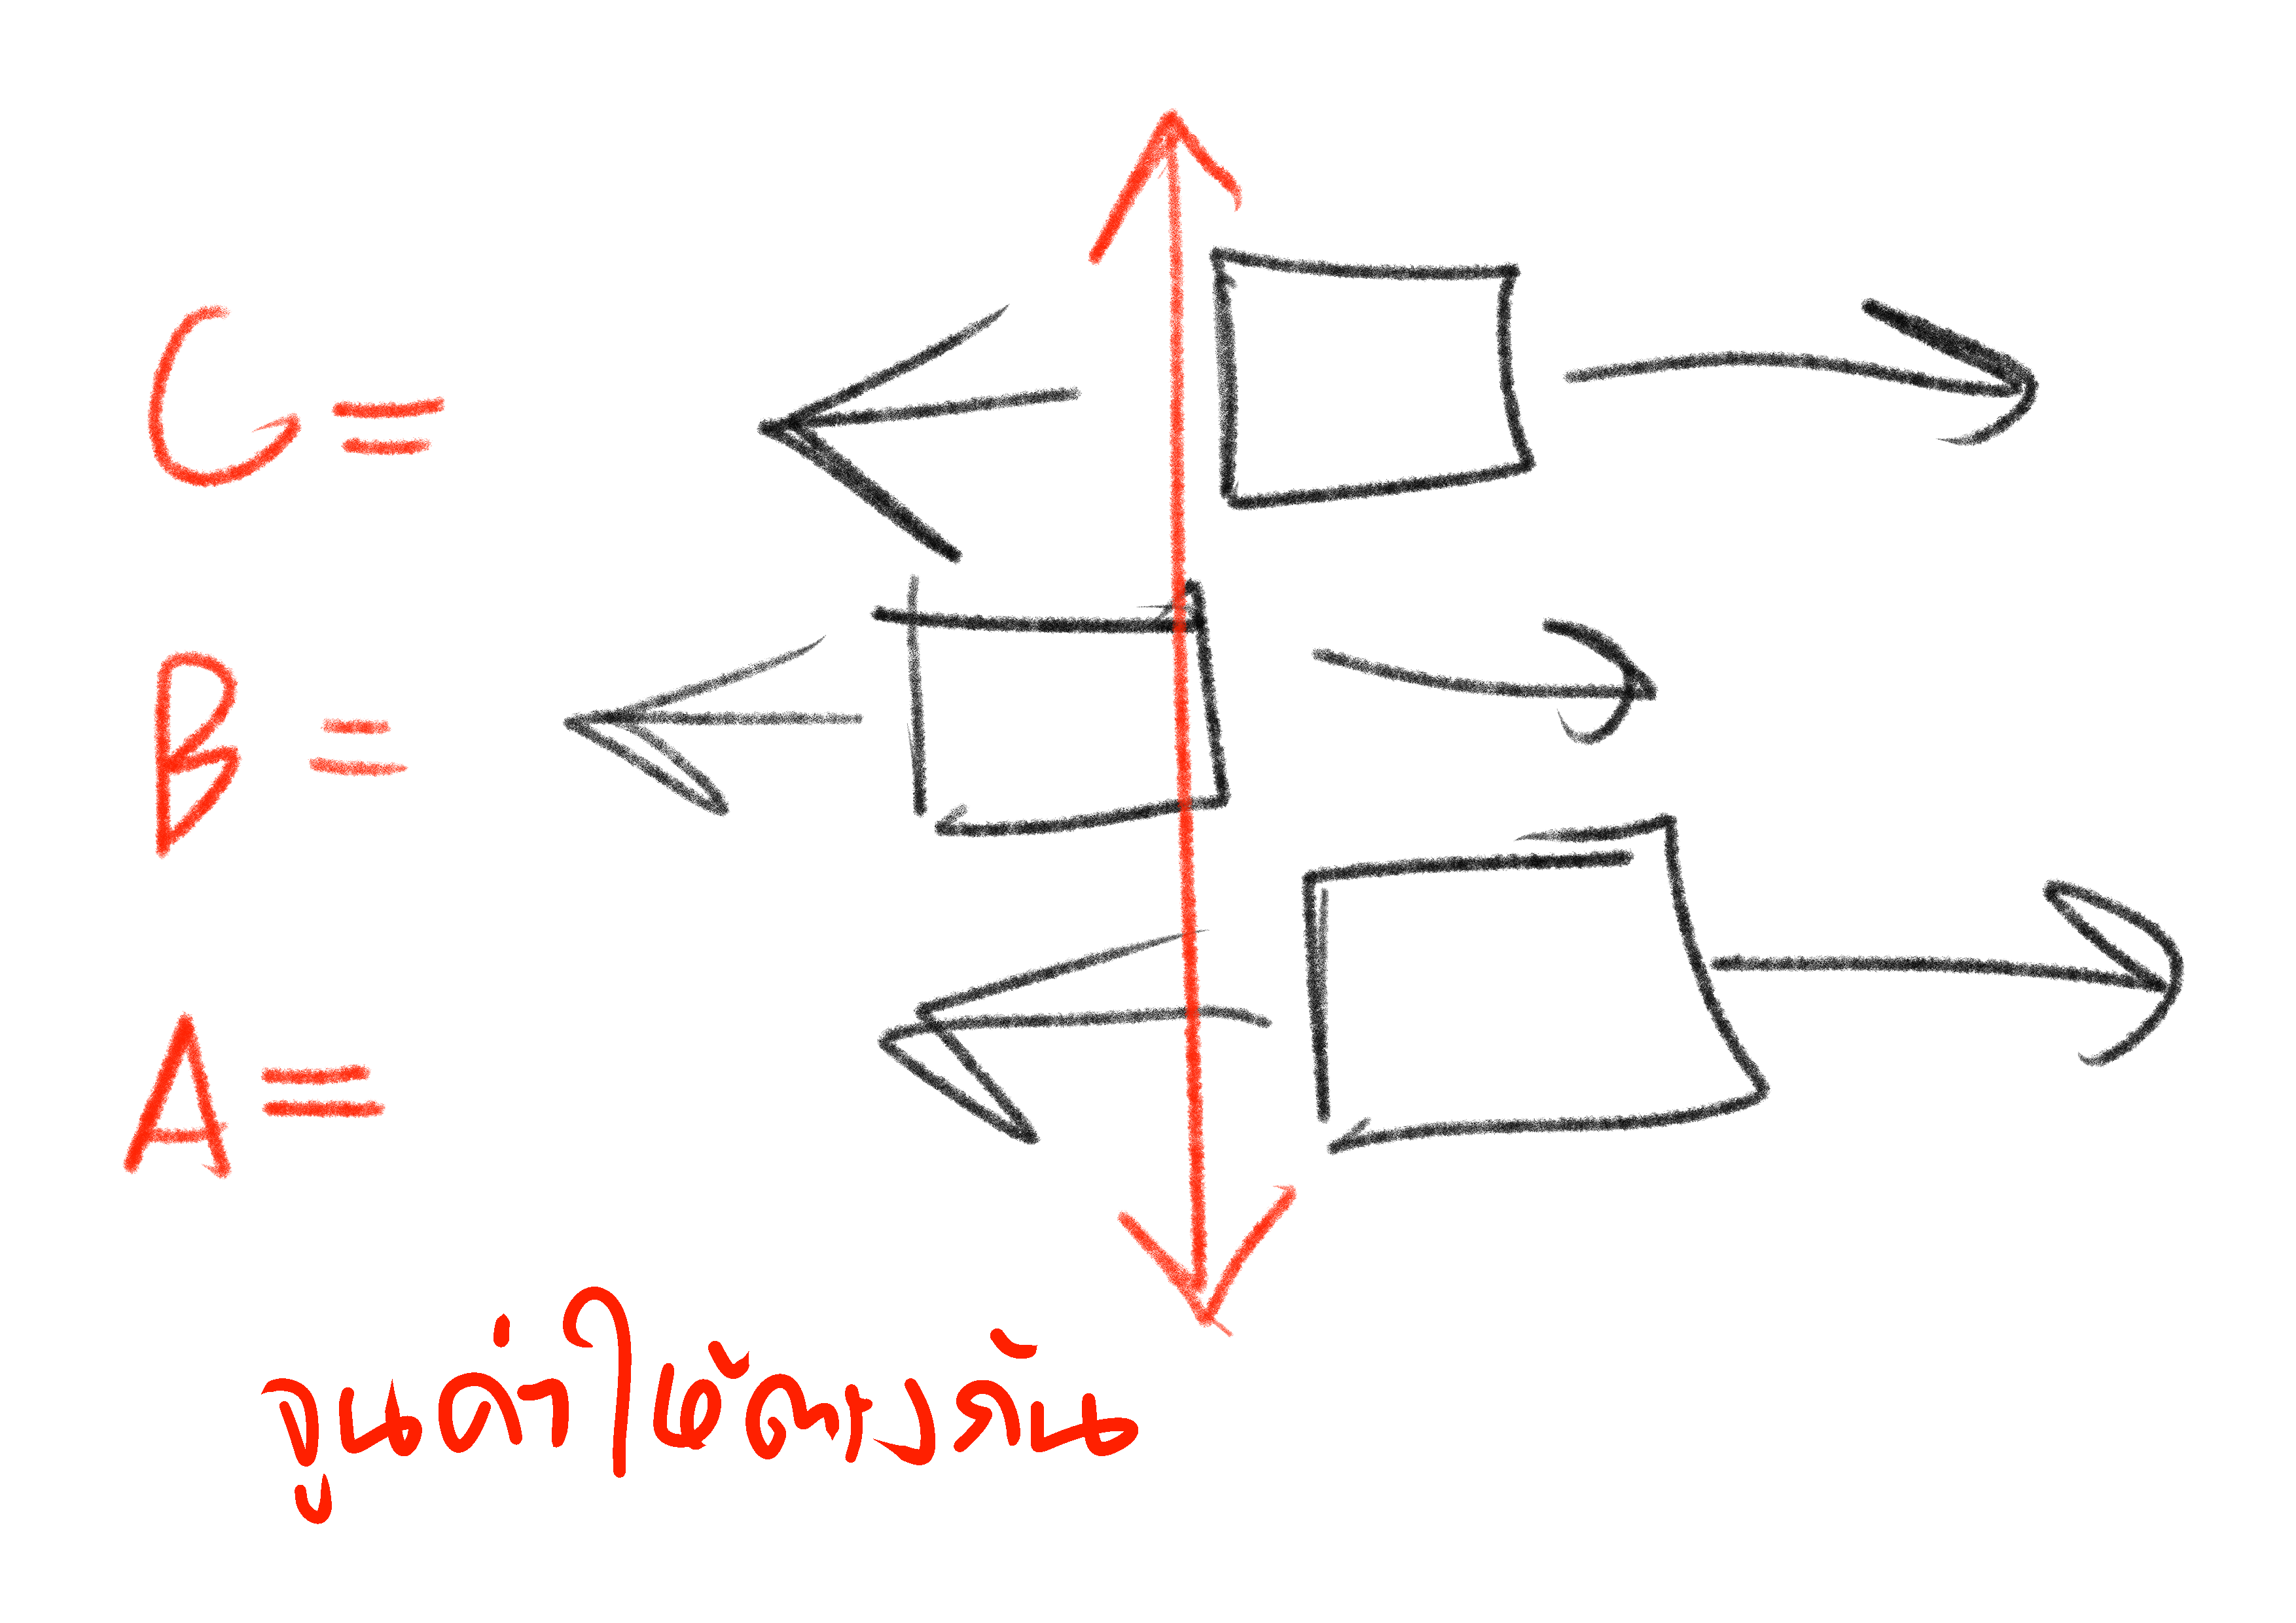 C=
B=
A=
จูนค่าให้ตรงกัน